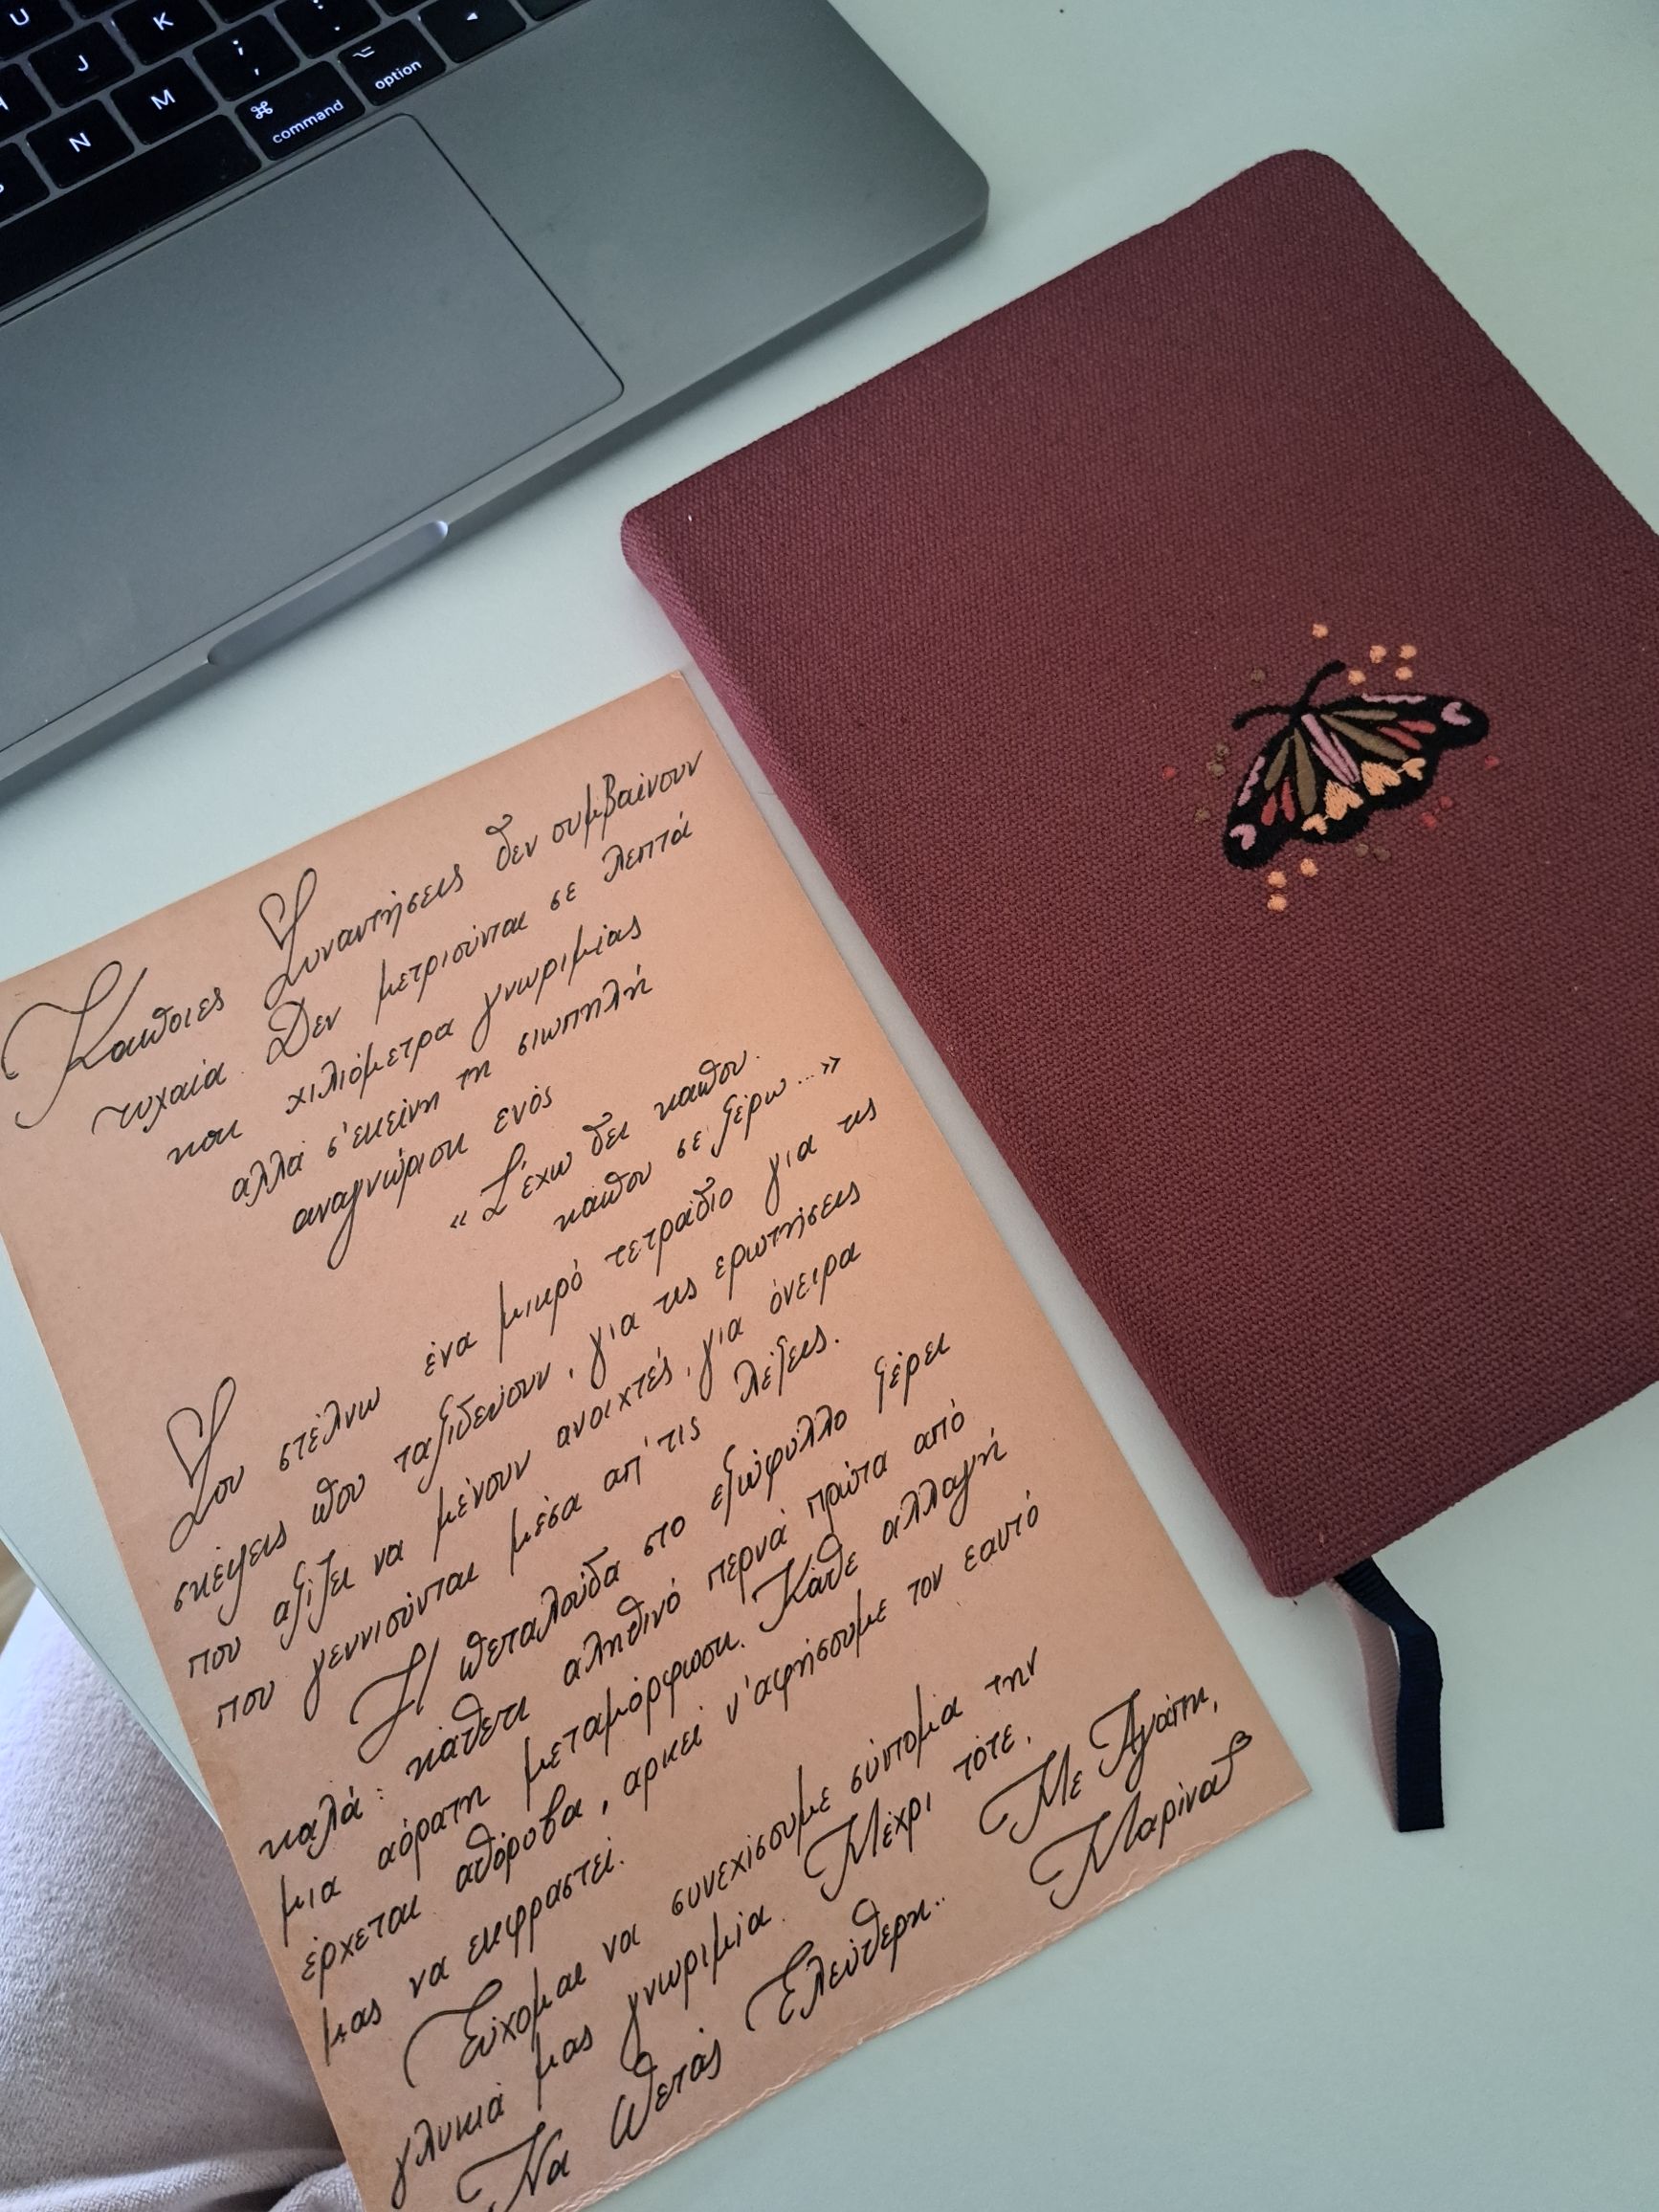 U
K
J
M
N
;
,
⌘
command
⌥
option
Κάποιες Συναντήσεις δεν συμβαίνουν
τυχαία. Δεν μετριούνται σε λεπτά
και χιλιόμετρα γνωριμίας
αλλά σ'εκείνη τη σιωπηλή
αναγνώριση ενός
« Σ'έχω δει κάπου.
κάπου σε ξέρω...»
Σου στέλνω ένα μικρό τετράδιο για τις
σκέψεις που ταξιδεύουν, για τις ερωτήσεις
που αξίζει να μένουν ανοιχτές, για όνειρα
που γεννιούνται μέσα απ'τις λέξεις.
Η πεταλούδα στο εξώφυλλο ξέρει
καλά: κάθετι αληθινό περνά πρώτα από
μια αόρατη μεταμόρφωση. Κάθε αλλαγή
έρχεται απρόοβα, αρκεί ν'αφήσουμε τον εαυτό
μας να εκφραστεί.
Εύχομαι να συνεχίσουμε σύντομα την
γλυκιά μας γνωριμία. Μέχρι τότε,
Να Πετάς Ελεύθερη..
Με Αγάπη,
Μαρίνα